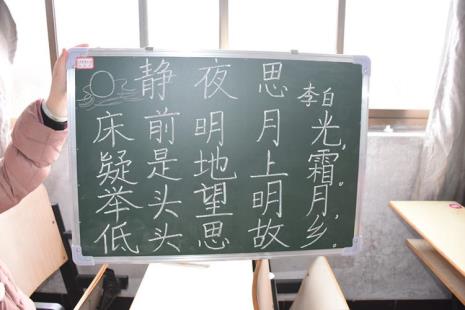 静夜思 李白
床前明月光，
疑是地上霜。
举头望明月，
低头思故乡。